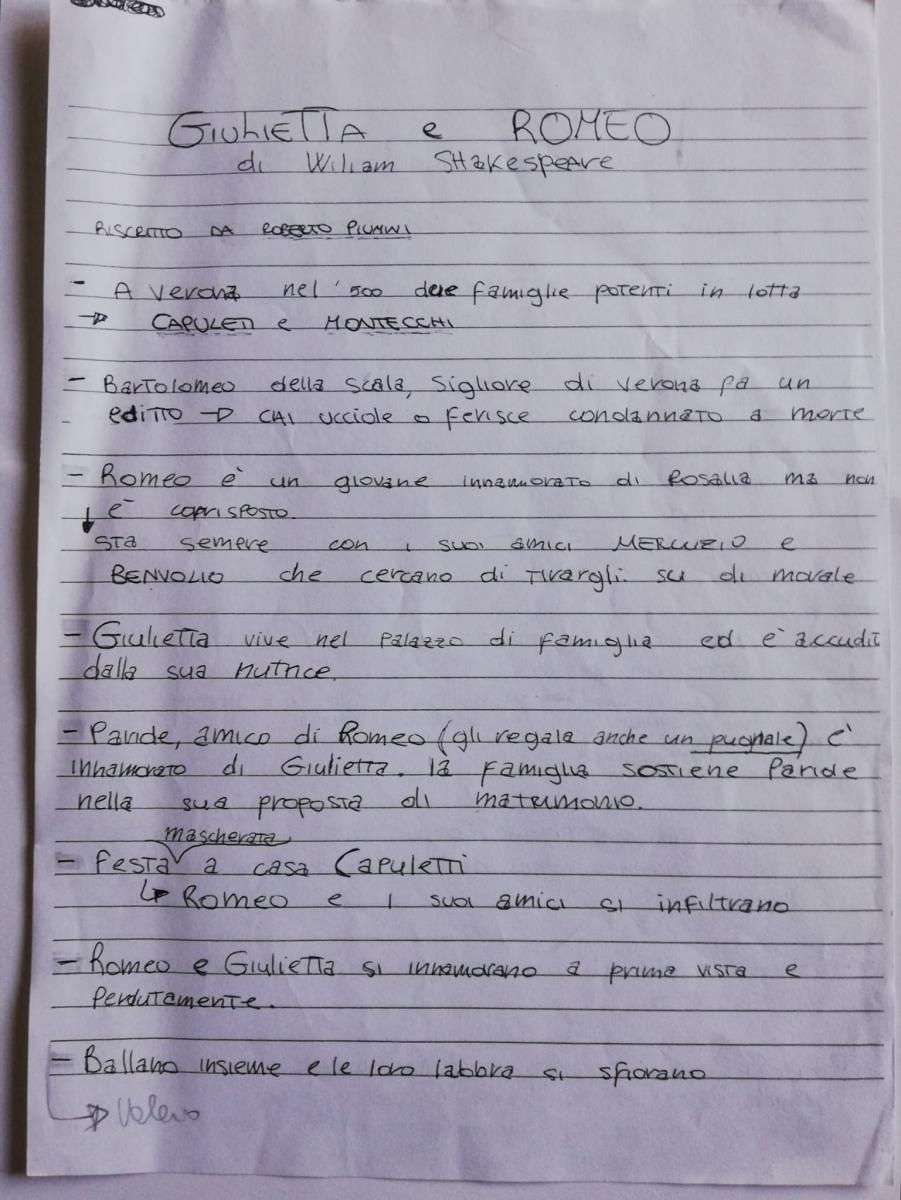 GIULIETTA e ROMEO
di Wiliam Shakespeare
RISCRITTO DA ROBERTO PIUMINI
- A Verona nel '500 due famiglie potenti in lotta
→ CAPULETI e MONTECCHI
- Bartolomeo della Scala, Sigliore di Verona fa un
editto → CHI uccide o ferisce condannato a morte
- Romeo è un giovane innamorato di Rosalia ma non
è coprisposto.
↓ sta semere con i suoi amici MERCUZIO e
BENVOLIO che cercano di tirargli su di morale
- Giulietta vive nel palazzo di famiglia ed è accudit
dalla sua nutrice.
- Paride, amico di Romeo (gli regala anche un pugnale) è
innamorato di Giulietta. la famiglia sostiene Paride
nella sua proposta di matrimonio.
mascherata
- Festa a casa Capuletti
↳ Romeo e i suoi amici si infiltrano
- Romeo e Giulietta si innamorano a prima vista e
perdutamente.
- Ballano insieme e le loro labbra si sfiorano